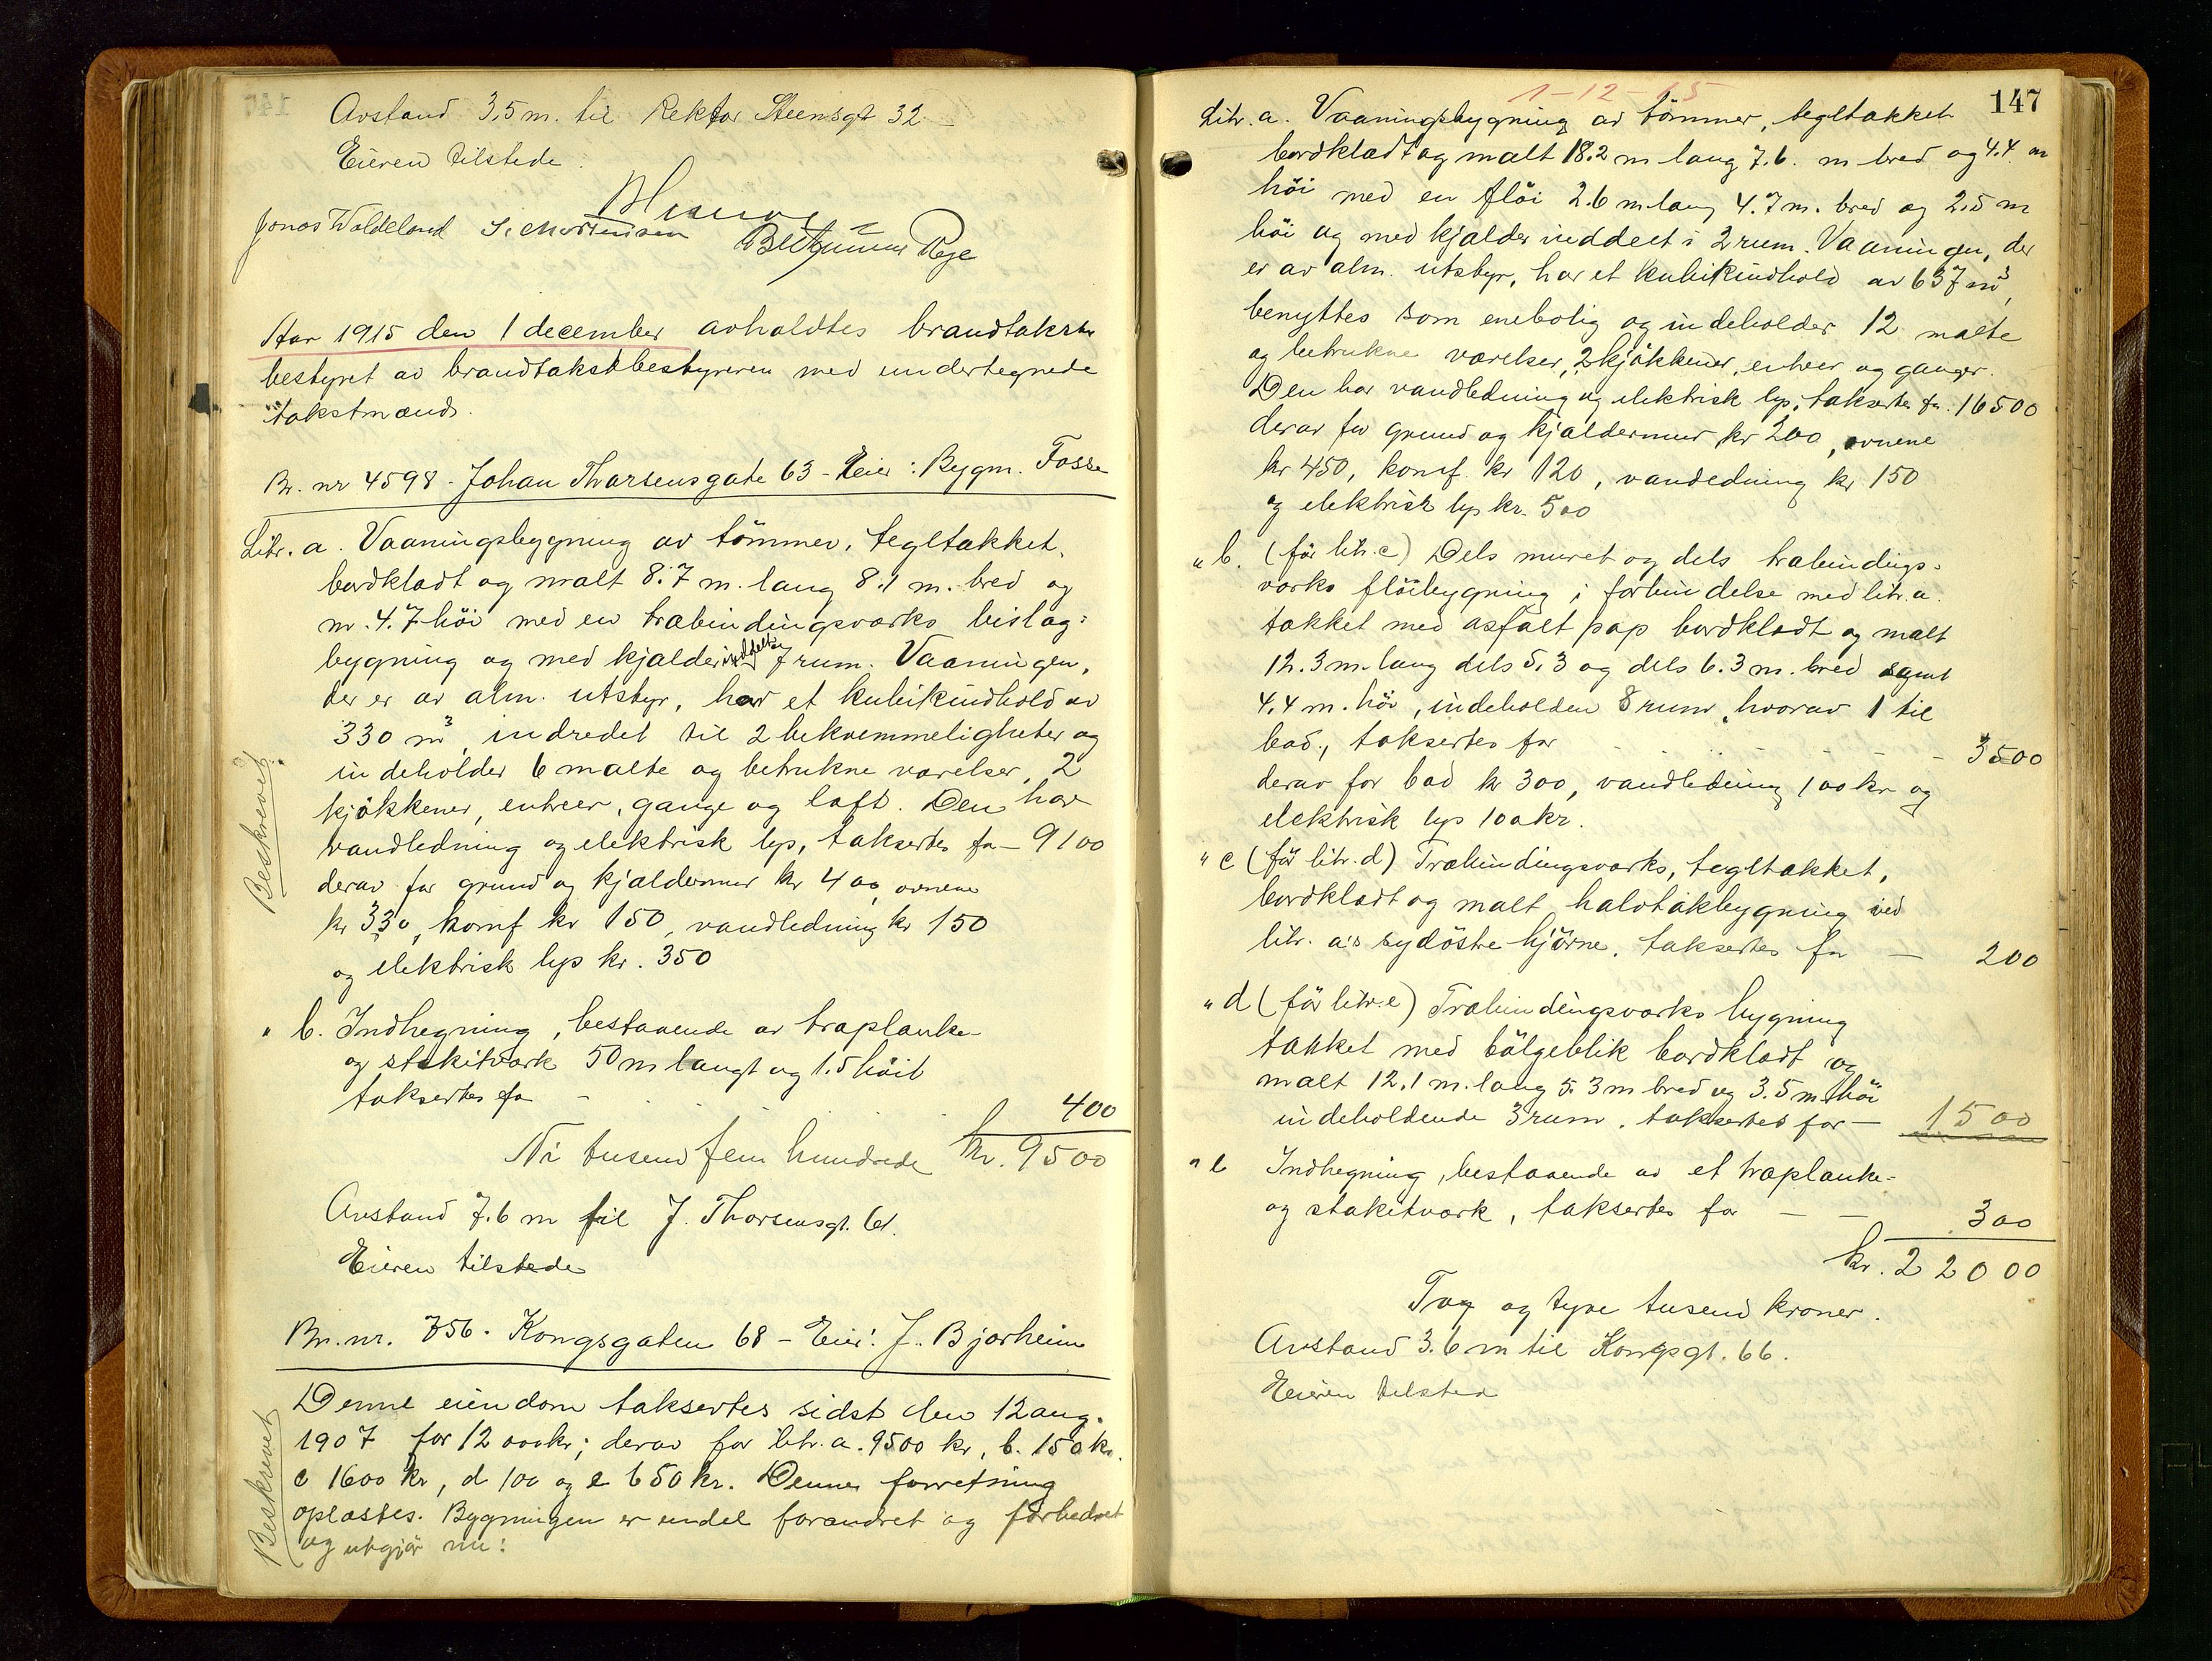 Avstand 3,5 m. til Rektor Steensgt 32 –
Eieren tilstede.
Jonas Waldeland S. Mortensen
Aar 1915 den 1 december avholdtes brandtakster
bestyret av brandtakstbestyreren med undertegnede
takstmænd.
Br. nr 4598 - Johan Thorsensgate 63 - Eier: Bygm. Fosse
Litr. a. Vaaningsbygning av tömmer, tegltækket,
bordklædt og malt 8.7 m. lang 8.1 m. bred og
m. 4.7 höi med en træbindingsværks bislag-
bygning og med kjælder inddelt 7 rum. Vaaningen,
der er av alm. utstyr, har et kubikindhold av
330 m³, indredet til 2 bekvemmeligheter og
indeholder 6 malte og betrukne værelser, 2
kjökkener, entreer, gange og loft. Den har
vandledning og elektrisk lys, taksertes for – 9100
derav for grund og kjældermur kr 400, ovnene
kr 330, komf kr 150, vandledning kr 150
og elektrisk lys kr. 350
Beskrevet
" b. Indhegning, bestaaende av træplanke-
og stakitværk 50 m langt og 1.5 höit
taksertes for - 400
Ni tusend fem hundrede kr. 9500
Avstand 7.6 m til J. Thorsensgt. 61.
Eieren tilstede
Br. nr. 756. Kongsgaten 68 – Eier: J. Bjorheim
Denne eiendom taksertes sidst den 12 aug.
1907 for 12 000 kr; derav for litr. a. 9500 kr, b. 150 kr.
c 1600 kr, d 100 og e 650 kr. Denne forretning
oplæstes. Bygningen er endel forandret og forbedret
og utgjör nu:
Beskrevet
1-12-15
147
Litr. a. Vaaningsbygning av tömmer, tegltækket
bordklædt og malt 18.2 m lang 7.6. m bred og 4.4 m
höi med en flöi 2.6 m lang 4.7 m. bred og 2.5 m
höi og med kjælder inddelt i 2 rum. Vaaningen, der
er av alm. utstyr, har et kubikindhold av 637 m³,
benyttes som enebolig og indeholder 12 malte
og betrukne værelser, 2 kjökkener, entreer og ganger.
Den har vandledning og elektrisk lys, taksertes for. 16500
derav for grund og kjældermur kr 200, ovnene
kr 450, komf. kr 120, vandledning kr 150
og elektrisk lys kr. 500
" b. (för litr. c) Dels muret og dels træbindings-
værks flöibygning i forbindelse med litr. a.
tækket med asfalt pap bordklædt og malt
12.3 m. lang dels 5,3 og dels 6.3 m. bred samt
4.4 m. höi, indeholden 8 rum, hvorav 1 til
bad, taksertes for - 3500
derav for bad kr 300, vandledning 100 kr og
elektrisk lys 100 kr.
" c (för litr. d) Træbindingsværks, tegltækket,
bordklædt og malt halvtakbygning ved
litr. a's sydöstre hjörne, taksertes for — 200
" d (för litr. e) Træbindingsværks bygning
tækket med bölgeblik bordklædt og
malt 12.1 m. lang 5.3 m bred og 3.5 m. höi
indeholdende 3 rum, taksertes for — 1500
" e Indhegning, bestaaende av et træplanke-
og stakitværk, taksertes for — — 300
kr. 22000
Tog og tyve tusend kroner.
Avstand 3.6 m til Kongsgt. 66.
Eieren tilsted